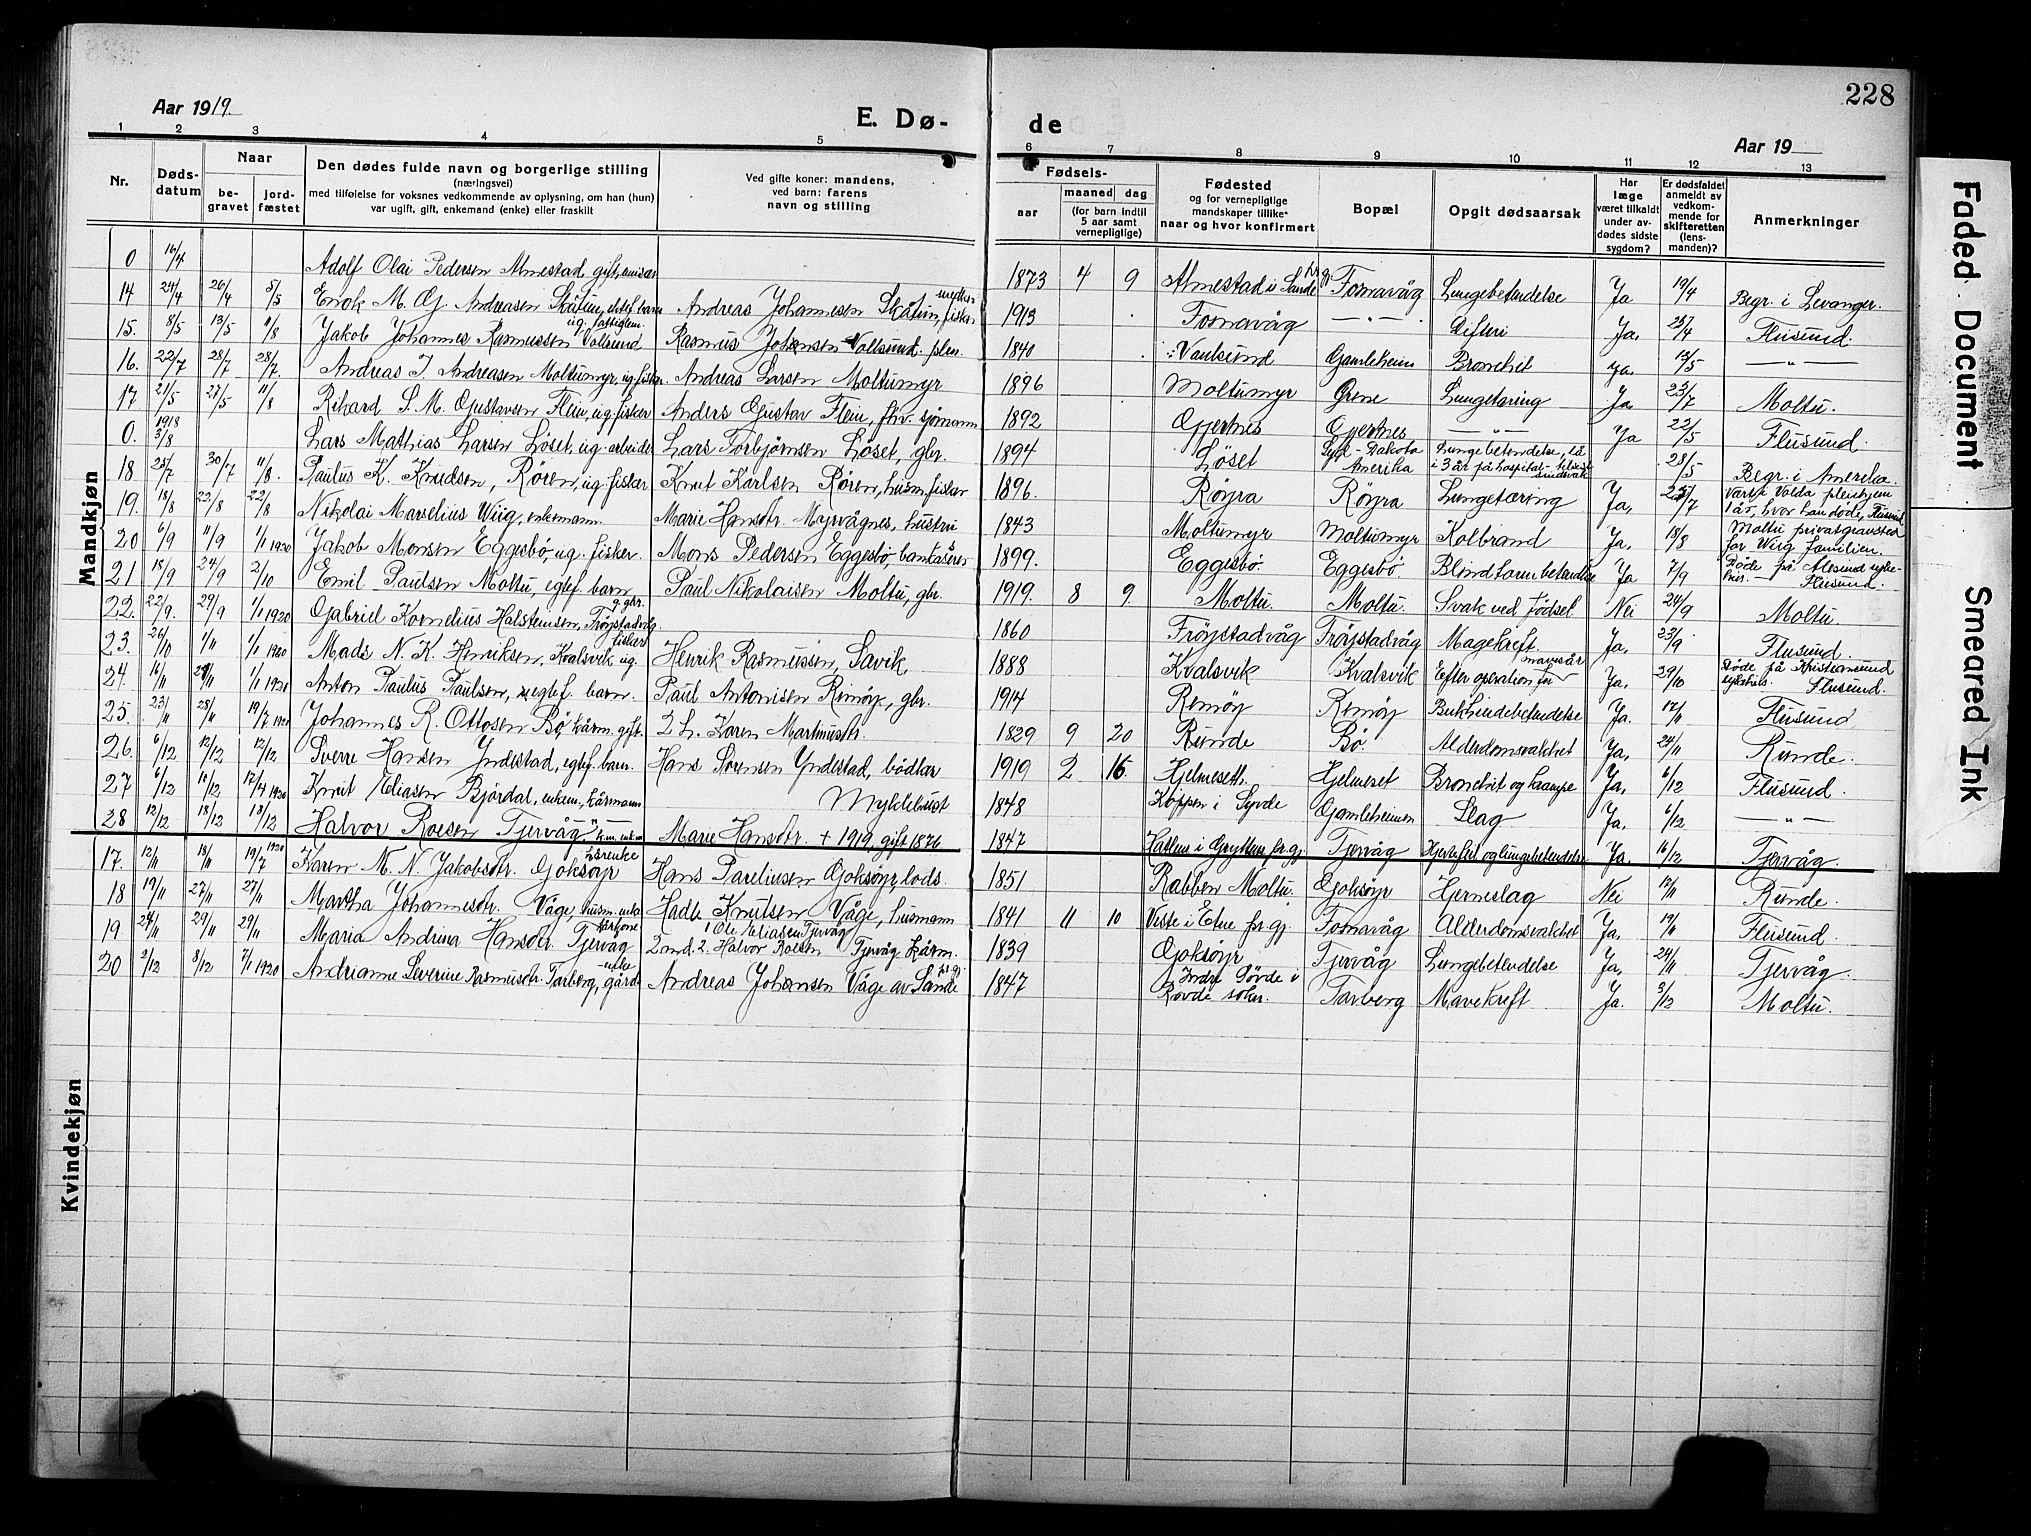 228
Aar 1919.
E. Dø-
de
Aar 19
1 2 3 4 5 6 7 8 9 10 11 12 13
Nr.
Døds-
datum
Naar
be-
gravet
jord-
fæstet
Den dødes fulde navn og borgerlige stilling
(næringsvei)
med tilføielse for voksnes vedkommende av oplysning, om han (hun)
var ugift, gift, enkemand (enke) eller fraskilt
Ved gifte koner: mandens,
ved barn: farens
navn og stilling
Fødsels-
aar
maaned
dag
(for barn indtil
5 aar samt
vernepligtige)
Fødested
og for vernepligtige
mandskaper tillike
naar og hvor konfirmert
Bopæl
Opgit dødsaarsak
Har
læge
været tilkaldt
under av-
dødes sidste
sygdom?
Er dødsfaldet
anmeldt av
vedkom-
mende for
skifteretten
(lens-
manden)?
Anmerkninger
Mandkjøn
0 16/4 Adolf Olai Pedersen Almestad, gift, 1873 4 9 Almestad i Sande Fosnavåg Lungebetendelse Ja 19/4 Begr. i Levanger.
14 24/4 26/4 5/5 Enok M. G. Andreasen Andreas Johannesen fisker 1913 Fosnavåg — " — Difteri Ja, 28/4 Flusund.
15. 8/5 13/5 11/8 Jakob Johannes Rasmussen Volsund Rasmus Johansen Vollsund 1840 Gamleheim Bronchit Ja. 13/5 — " —
16. 22/7 28/7 28/7. Andreas J. Andreasen Moltumyr, ug. fisker. Andreas Larsen Moltumyr 1896 Moltumyr Grene Lungetæring Ja, 23/7 Moltu.
17 21/5 27/5 11/8 Rikard S. M. Gustavsen Flem, ug. fisker Anders Gustav Flem, fhv. sjømann 1892 Gjertnes Gjertnes — " — Ja 22/5 Flusund.
0. 1918 3/8 Lars Mathias Larsen Løset, ug. arbeider Lars Torbjørnsen Løset, gbr. 1894 Løset Dakota Amerika Lungebetendelse, lå i 3 år på hospital 28/5 Begr. i Amerika.
18 25/7 30/7 11/8. Paulus K. Knudsen, Røren, ug. fisker Knut Karlsen Røren, husm. fisker 1896. Røyra Røyra Lungetæring Ja, 25/7 Volda pleiehjem 1 år, hvor han døde, Flusund
19. 18/8 22/8 22/8 Nikolai Marselius Wiig, enkemann. Marie Hansdtr. Myrvågnes, hustru 1843 Moltumyr Moltumyr Kolbrand Ja, 18/8 Moltu privatgravsted for Wiig familien.
20 6/9 11/9 1/1 1920 Jakob Monsen Eggesbø, ug. fisker. Mons Pedersen Eggesbø, bankkaserer 1899. Eggesbø Eggesbø Blindtarmbetendelse Ja 7/9 Døde på Ålesund sykehus. — Flusund.
21 18/9 24/9 2/10 Emil Paulsen Moltu, egtef. barn Paul Nikolaisen Moltu, gbr. 1919. 8 9 Moltu. Moltu. Svak ved fødsel Nei 24/9 Moltu.
22. 22/9. 29/9 1/1 1920 Gabriel Kornelius Halsteinsen, Frøystadvåg g. gbr. 1860 Frøystadvåg Frøystadvåg Magekreft. Ja, 23/9 Flusund.
23. 26/10 1/11 1/1 1920 Mads N. K. Henriksen, Kvalsvik ug. fisker Henrik Rasmussen, Savik, 1888 Kvalsvik Kvalsvik Efter operation for mavesår Ja, 29/10 Døde på Kristiansund sykehus Flusund.
24. 16/11 24/11 1/1 1920 Anton Paulus Paulsen, uegtef. barn. Paul Antonisen Remøy, gbr. 1914 Remøy Remøy Bukhindebetendelse Ja. 17/11 Flusund
25. 23/11 28/11 19/7 1920 Johannes R. Ottosen Bø, kårm. gift. 2 h. Karen Martinusdtr. 1829 9 20 Runde Bø Alderdomsvakhet Ja, 24/11 Runde.
26. 6/12 12/12 12/12 Sverre Hansen Yndestad, egtef. barn. Hans Sørensen Yndestad, bødker 1919 2 16. Hjelmeseth. Hjelmeset Bronchit og krampe Ja, 6/12 Flusund.
27 6/12 10/12 17/4 1920 Knut Eliasen Bjørdal, enkem, kårmann Myklebust 1848 Koppen i Syvde Gamleheimen Slag Ja, 6/12 — " —
28 12/12 18/12 13/12 Halvor Roesen Tjervåg Marie Hansdtr. + 1919, gift 1876 1847 Hatlem i Grytten pr.gj. Tjervåg Hjertefeil og lungebetendelse Ja. 16/12 Tjervåg.
Kvindekjøn
17. 12/11 18/11 19/7 1920 Karen M. N. Jakobsdtr. Gjoksøyr kårenke Hans Pareliussen Gjoksøyr, lods. 1851 Rabben Moltu. Gjoksøyr Hjerneslag Nei 12/11 Runde.
18 19/11 27/11 27/11 Martha Johannesdtr. Våge, husm. enke Hadle Knutsen Våge, husmann 1841 11 10 Viste i Etne pr.gj. Fosnavåg Alderdomsvakhet Ja, 19/11 Flusund.
19 24/11 29/11 29/11 Maria Andrina Hansdtr. Tjervåg kårkone 1 Ole Eliassen Tjervåg 2. Halvor Roesen Tjervåg kårm. 1839 Gjoksøyr Tjervåg Lungebetendelse Ja, 24/11 Tjervåg.
20 2/12 8/12 7/1 1920 Andrianne Severine Rasmusdtr. Tarberg, enke Andreas Johansen Våge av Sande pr.gj. 1847 Indre Søvde i Rovde sokn. Tarberg Mavekreft Ja. 3/12 Moltu.
Faded Document
Smeared Ink